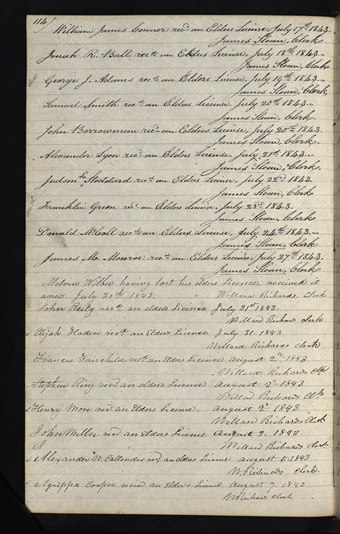 114
William James Connor recd an Elders License, July 17th 1843.
James Sloan, Clerk
Jonah R. Ball recd an Elders License, July 18th 1843.
James Sloan, Clerk
George J. Adams recd an Elders License, July 19th 1843.
James Sloan, Clerk
Samuel Smith recd an Elders License, July 20th 1843.
James Sloan, Clerk
John Borrowman recd an Elders License, July 20th 1843.
James Sloan, Clerk
Alexander Lyon recd an Elders License, July 21st 1843.
James Sloan, Clerk
Judson Stoddard recd an Elders License, July 22nd 1843.
James Sloan, Clerk
Franklin Green recd an Elders License, July 23d 1843.
James Sloan, Clerk
Donald McCall recd an Elders License, July 24th 1843.
James Sloan, Clerk
James Mc Monroe recd an Elders License July 27th 1843.
James Sloan, Clerk
having lost his elders license received it
anew July 30th 1843. Willard Richards Clerk
John Reily recd an elders License July 31st 1843.
Willard Richards clerk
Elijah recd an Elders License July 31. 1843
Willard Richards clerk
Francis Fairchild recd an Elders License august 2nd 1843
Willard Richards clk
Stephen King recd an elders License august 2d 1843
Willard Richards clk
Henry More recd an Elders License august 2d 1843.
Willard Richards clk
John Miller recd an elders License August 3. 1843
Willard Richards clk
Alexander W. Callender recd an elders License august 6 1843
W. Richards clerk
Agrippa Cooper recd an elders License august 7. 1843
W Richards clerk